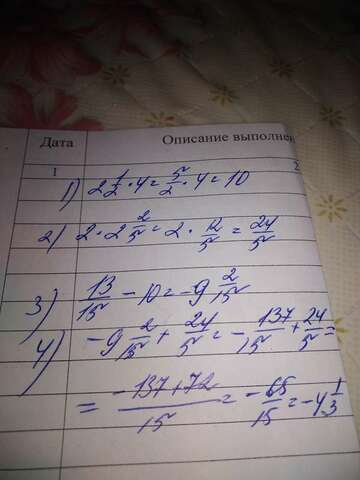 Дата Описание выполнен
1
1) 2 1/2 · 4 = 5/2 · 4 = 10
2) 2 · 2 2/5 = 2 · 12/5 = 24/5
3) 13/15 - 10 = -9 2/15
4) -9 2/15 + 24/5 = - 137/15 + 24/5 =
= -137+72/15 = - 65/15 = -4 1/3